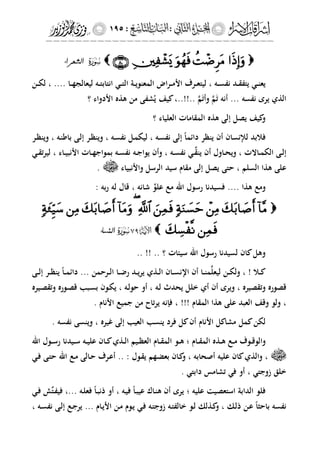 ١٩٥
﴿ وَإِذَا مَرِضْتُ فَهُوَ يَشْفِينِ ﴾ سورة الشعراء
يعنـي يتفقـد نفسـه ، ليتعـرف الأمـراض المعنويـة التـي انتابتـه ليعالجهـا .... ، لكـن
الذي يرى نفسه ... أنه تمَّ وأتمَّ ..!!.. ، كيف يُشفى من هذه الأدواء ؟
وكيف يصل إلى هذه المقامات العلياء ؟
فلابد للإنسان أن ينظر دائماً إلى نفسه ، ليكمل نفسه ، وينظر إلى باطنه ، وينظر
إلى الكمالات ، ويحاول أن يتقّي نفسه ، وأن يواجه نفسه بمواجهات الأنبياء ، ليرتقي
على هذا السلم ، حتى يصل إلى مقام سيد الرسل والأنبياء ﷺ .
ومع هذا .... فسيدنا رسول الله مع علوّ شانه ، قال له ربه :
﴿ مَّآ أَصَابَكَ مِنْ حَسَنَةٍ فَمِنَ ٱللَّهِ وَمَآ أَصَابَكَ مِن سَيِّئَةٍ
فَمِن نَّفْسِكَ ﴾ سورة ٧٩ النساء
وهل كان لسيدنا رسول الله سيئات ؟ .. !! ..
كلا ! ، ولكن ليعلِّمنا أن الإنسان الذي يريد رضا الرحمن ... دائماً ينظر إلى
قصوره وتقصيره ، ويرى أن أي خلل يحدث له ، أو حوله ، يكون بسبب قصوره وتقصيره
، ولو وقف العبد على هذا المقام !!! ، فإنه يرتاح من جميع الأنام .
لكن كمل مشاكل الأنام أن كل فرد ينسب العيب إلى غيره ، وينسى نفسه .
والوقوف مع هذه المقام ؛ هو المقام العظيم الذي كان عليه سيدنا رسول الله
ﷺ ، والذي كان عليه أصحابه ، وكان بعضهم يقول : .. أعرف حالى مع الله حتى في
خلق زوجتي ، أو في تشامس دابتي .
فلو الدابة استعصيت عليه ؛ يرى أن هناك عيباً فيه ، أو ذنباً فعله ... ، فيفتّش في
نفسه باحثاً عن ذلك ، وكذلك لو خالفته زوجته في يوم من الأيام ... يرجع إلى نفسه ،